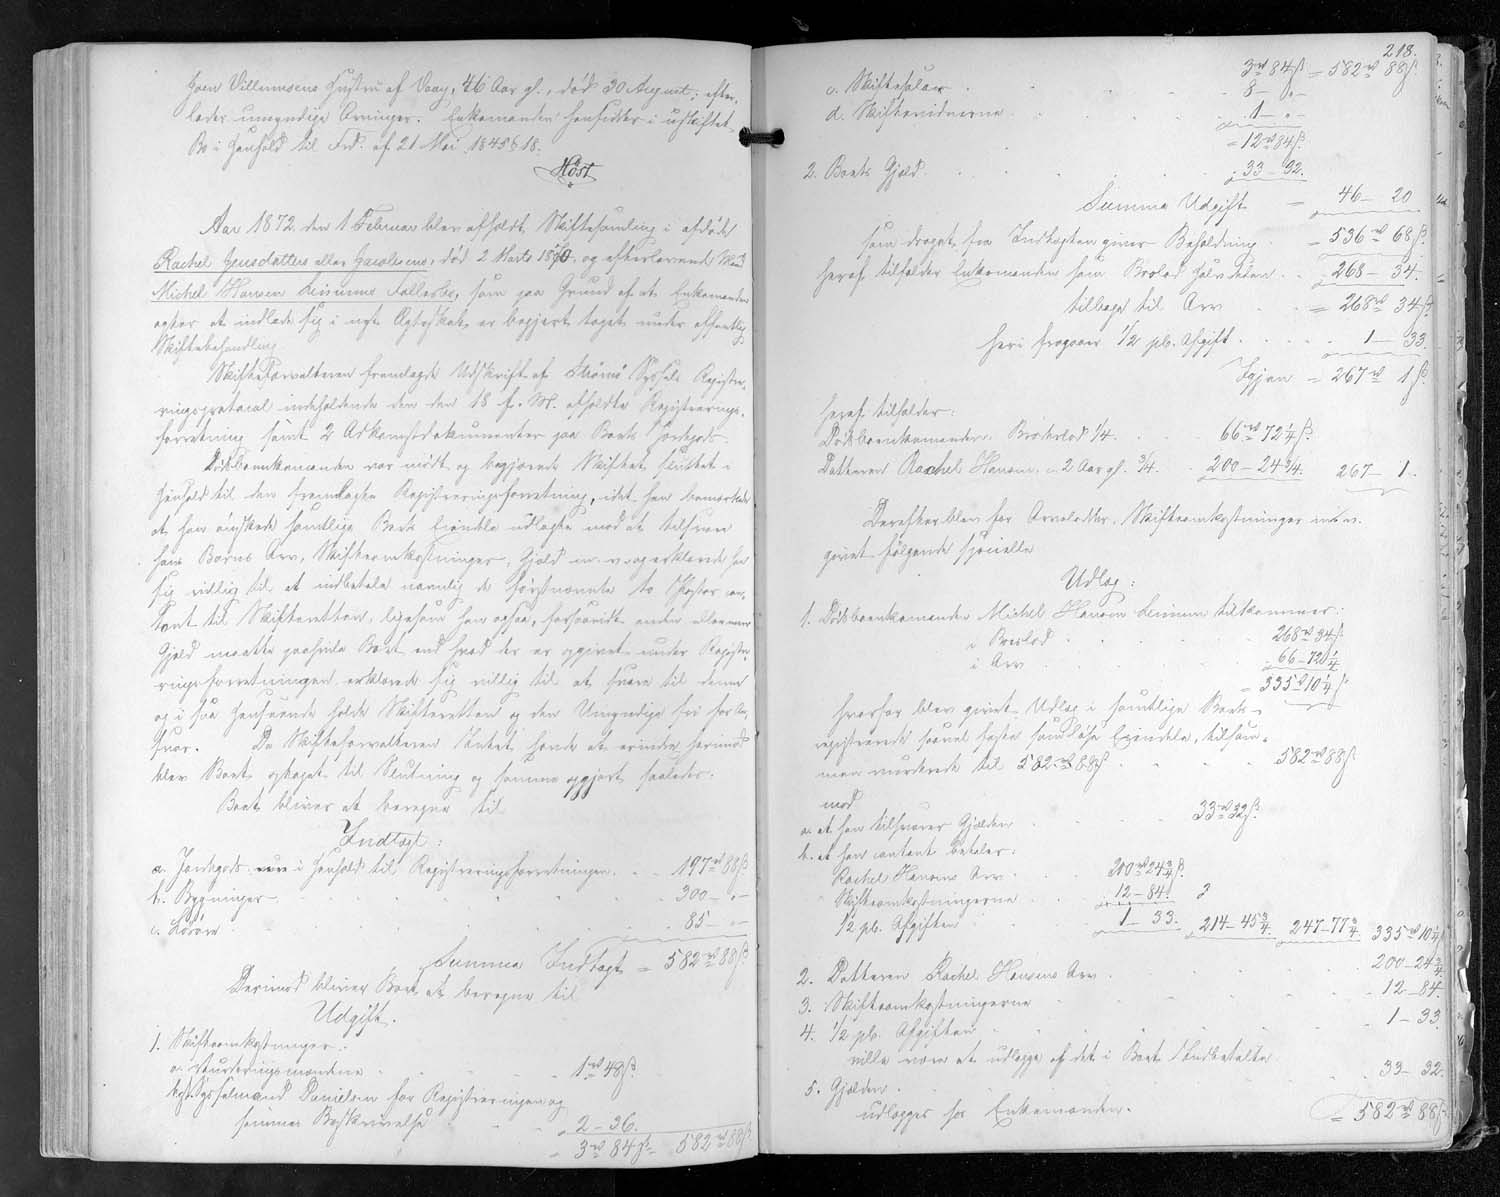 Joen Villumsens Hustru af Vaag, 46 Aar gl., død 30 August; efter-
lader umyndige Arvinger. Enkemanden hensidder i uskiftet
Bo i Henhold til Frd. af 21 Mai 1845 § 18.
Høst
Aar 1872 den 1 Februar blev afholdt Skiftesamling i afdøde
Rachel Hansdatters eller Jacobsens, død 2 Marts 1870, og efterlevende Mand
Michel Hansen Boet, som paa Grund af at Enkemanden
agter at indlade sig i nyt Ægteskab, er begjært taget under offentlig
Skiftebehandling.
Skifteforvalteren fremlagde Udskrift af Strømø Syssels Registre-
ringsprotocol indeholdende den den 18 f. M. afholdte Registrerings-
forretning samt 2 Adkomstdokumenter paa Boets Jordegods.
Dødsboenkemanden var mødt og begjærede Skiftet sluttet i
Henhold til den fremlagte Registreringsforretning, idet han bemærkede
at han ønskede samtlige Boets Eiendele udlagte mod at tilsvare
hans Barns Arv, Skifteomkostninger, Gjæld m. v. og erklærede han
sig villig til at indbetale navnlig de førstnævnte to Poster con-
tant til Skifteretten, ligesom han ogsaa, forsaavidt anden eller mere
Gjæld maatte paahvile Boet end hvad der er opgivet under Registre-
ringsforretningen erklærede sig villig til at svare til denne
og i saa Henseende holde Skifteretten og den Umyndige fri for An-
svar. Da Skifteforvalteren Intet havde at erindre herimod
blev Boet optaget til Slutning og samme opgjort saaledes:
Boet bliver at beregne til
Indtægt:
a. Jordegods i Henhold til Registreringsforretningen . . 197 rd 88 ß.
b. Bygninger . . 300 – " –
c. Løsøre . . 85 – " –
Summa Indtægt = 582 rd 88 ß.
Derimod bliver Boet at beregne til
Udgift.
1. Skifteomkostninger:
a. Vurderingsmændene . . 1 rd 48 ß.
b. Sysselmand Danielsen for Registreringen og
sammes Beskrivelse . . 2 – 36.
= 3 rd 84 ß = 582 rd 88 ß.
218.
3 rd 84 ß = 582 rd 88 ß.
c. Skiftesalær . . 8 – " –
d. Skiftevidnerne . . 1 – " –
= 12 rd 84 ß.
2. Boets Gjæld . . 33 – 32.
Summa Udgift = 46 – 20
som draget fra Indtægten giver Beholdning = 536 rd 68 ß.
heraf tilfalder Enkemanden som Boslod Halvdelen . . 268 – 34.
tilbage til Arv = 268 rd 34 ß.
heri fragaaer 1/2 pCt. Afgift . . 1 – 33.
Igjen = 267 rd 1 ß.
heraf tilfalder:
Dødsboenkemanden Broderlod 1/4 . . 66 rd 72 1/4 ß.
Datteren Rachel Hansen, 2 Aar gl. 3/4 . . 200 – 24 3/4. 267 – 1 –
Derefter blev for Arvelodder, Skifteomkostninger m. v.
givet følgende specielle
Udlæg:
1. Dødsboenkemanden Michel Hansen tilkommer:
i Boslod . . 268 rd 34 ß.
i Arv . . 66 – 72 1/4
= 335 rd 10 1/4 ß.
hvorfor blev givet Udlæg i samtlige Boets
registrerede saavel faste som løse Eiendele, tilsam-
men vurderede til 582 rd 88 ß . . 582 rd 88 ß.
mod
a. at han tilsvarer Gjælden . . 33 rd 32 ß.
b. at han contant betaler:
Rachel Hansens Arv . . 200 rd 24 3/4 ß.
Skifteomkostningerne . . 12 – 84. 3
1/2 pCt. Afgiften . . 1 – 33. 214 – 45 3/4. 247 – 77 3/4 335 rd 10 1/4
2. Datteren Rachel Hansens Arv . . 200 – 24 3/4
3. Skifteomkostningerne . . 12 – 84.
4. 1/2 pCt. Afgiften . . 1 – 33
ville være at udlægge af det i Boet Indbetalte
5. Gjælden . . 33 – 32.
udlægges hos Enkemanden.
= 582 rd 88 ß.